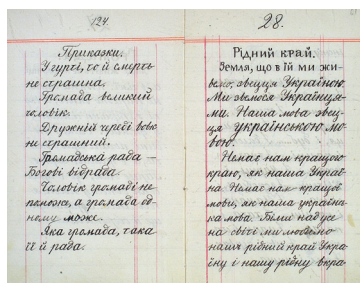 127.
Приказки.
У гурті, то й смерть
не страшна.
Громада великий
чоловік.
Дружній череді вовк
не страшний.
Громадська рада —
Богові відрада.
Чоловік громаді не
поможе, а громада од-
ному може.
Яка громада, така
її й рада.
28.
Рідний край.
Земля, що в їй ми жи-
вемо, звецця Україною.
Ми звемося Українця-
ми. Наша мова звец-
ця українською мо-
вою.
Немає нам кращого
краю, як наша Украї-
на. Немає нам кращої
мови, як наша україн-
ка мова. Більш над усе
на світі ми любемо
наш рідний край Укра-
їну і нашу рідну вкра-